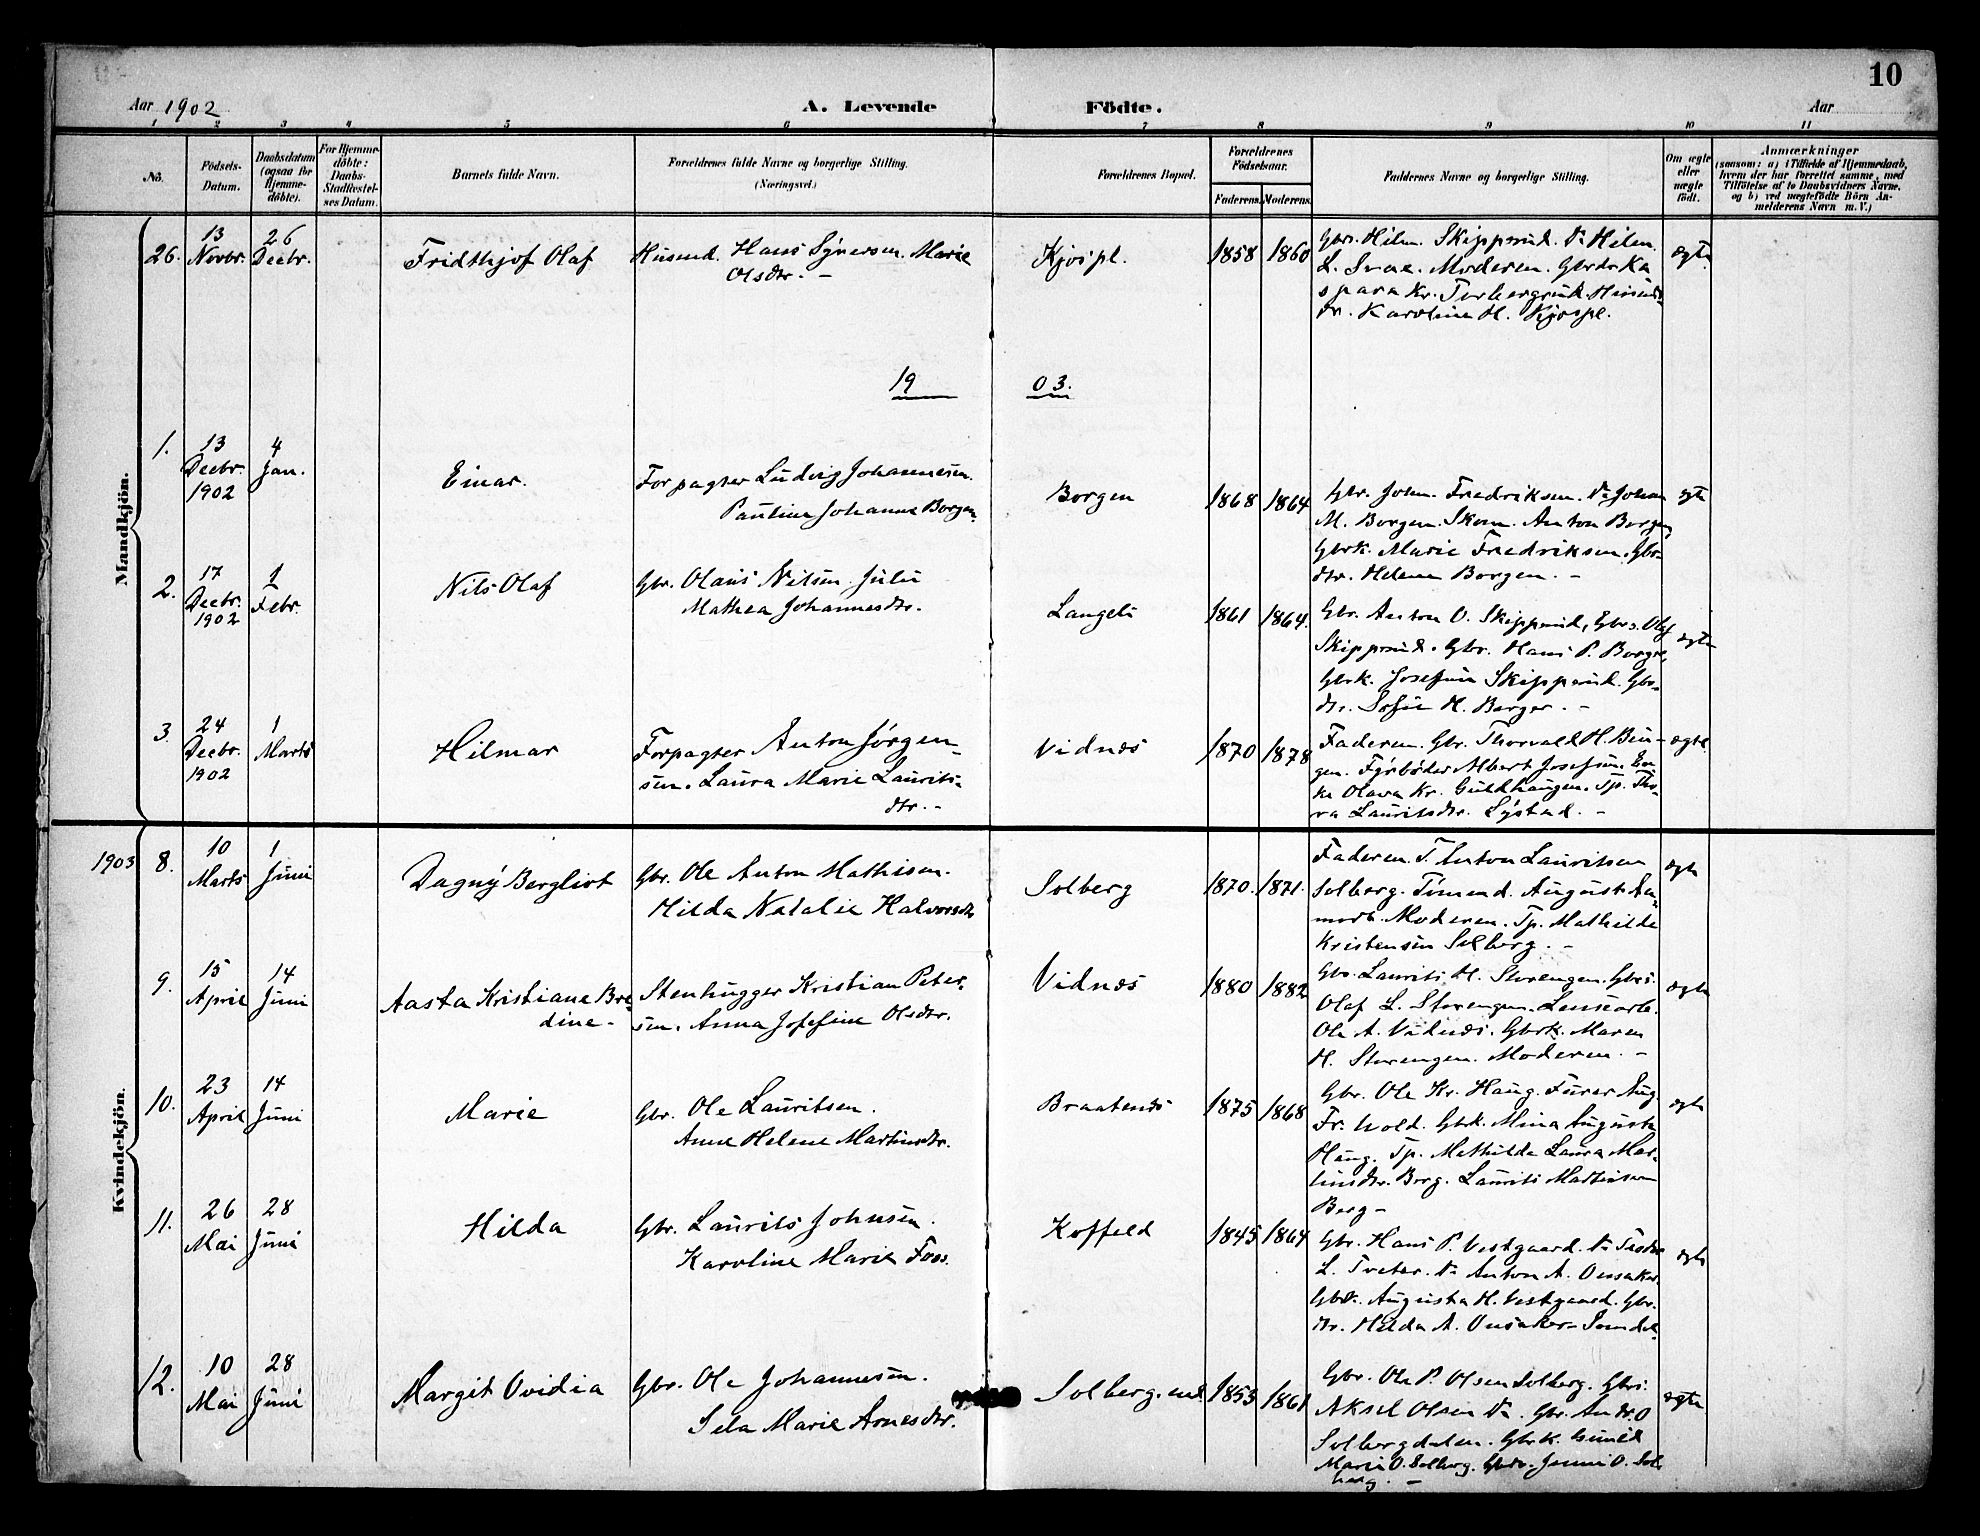 10
Aar 1902
A. Levende
Födte.
Aar
1 2 3 4 5 6 7 8 9 10 11
No.
Födsels-
Datum.
Daabsdatum
(ogsaa for
Hjemme-
döbte).
For Hjemme-
döbte:
Daabs-
Stadfæstel-
ses Datum.
Barnets fulde Navn.
Forældrenes fulde Navne og borgerlige Stilling.
(Næringsvei.)
Forældrenes Bopæl.
Forældrenes
Födselsaar.
Faderens. Moderens.
Faddernes Navne og borgerlige Stilling.
Om ægte
eller
uægte
födt.
Anmærkninger
(saasom: a) i Tilfælde af Hjemmedaab,
hvem der har forrettet samme, med
Tilföielse af to Daabsvidners Navne,
og b) ved uægtefödte Börn An-
melderens Navn m. V.)
Mandkjön.
26. 13 Novbr. 26 Decbr. Fridthjof Olaf
Husmd. Hans Syversen. Marie
Olsdtr. –
Kjóspl. 1858 1860
Gbrs. Hilm. Skipprud.
L. Svae. Moderen. Gbrdtr Ka
spara Kr. Torbergrud. Husmds
dtr. Karoline H. Kjóspl.
ægte
19 03.
1. 13 Decbr. 1902 4 Jan. Einar.
Forpagter Ludvig Johannesen.
Pauline Johanne Borgen.
Borgen 1868 1864
Gbr. Johan Fredriksen. Do Johan
M. Borgen. Skom. Anton Borgen,
Gbrk. Marie Fredriksen. Gbr-
dtr. Helene Borgen. –
ægte
2. 17 Decbr. 1902 1 Febr. Nils Olaf
Gbr. Olaus Nilsen. Julie
Mathea Johannesdtr.
1861 1864.
Gbr. Anton O. Skipprud, Gbrs. Olaf
Skipprud. Gbr. Hans P. Borger,
Gbrk. Josefine Skipprud. Gbr-
dtr. Sofie H. Borger. –
ægte
3. 24 Decbr. 1902 1 Marts Hilmar
Forpagter Anton Jörgen-
sen. Laura Marie Laurits-
dtr. –
Vidnæs 1870 1878
Faderen. Gbr. Thorvald H.
Fyrböder Albert Josefsen.
ke Olava Kr. Guldhaugen. Tp. Tho-
ra Lauritsdtr. Lystad. –
ægte
Kvindekjön.
1903 8. 10 Marts 1 Juni Dagny Bergliot
Gbr. Ole Anton Mathisen.
Hilda Natalie Halvorsdtr
Solberg 1870. 1871.
Faderen. T. Anton Lauritsen
Solberg. Tömmd. August
Moderen. Tp. Mathilde
Kristensen Solberg. –
ægte
9. 15 April 14 Juni Aasta Kristiane Bre
dine –
Stenhugger Kristian Peter-
sen. Anna Josefine Olsdtr.
Vidnæs 1880 1882
Gbr. Laurits H. Storengen. Gbrs.
Olaf L. Storengen. Lensearb.
Ole A. Vidnæs. Gbrk. Maren
H. Storengen. Moderen. –
ægte
10. 23 April 14 Juni Marie
Gbr. Ole Lauritsen.
Anne Helene Martinsdtr.
Braatenæs 1875 1868
Gbr. Ole Kr. Haug. Furer Aug.
Fr. Wold. Gbrk. Mina Augusta
Haug. Tp. Mathilde Laura Mar-
tinsdtr. Berg. Laurits Martinsen
Berg –
ægte
11. 26 Mai 28 Juni Hilda
Gbr. Laurits Johnsen.
Karoline Marie Foss.
Koffeld 1845 1864
Gbr. Hans P. Vestgaard.
L. Tveter. Do Anton A. Onsaker.
Gbrk. Augusta H. Vestgaard. Gbr.
dtr. Hilda A. Onsaker
ægte
12. 10 Mai 28 Juni Margit Ovidia
Gbr. Ole Johannesen.
Sela Marie Arnesdtr.
Solberg. 1853 1861
Gbr. Ole P. Olsen Solberg. Gbrs.
Aksel Olsen Do. Gbr. Andr. O
Solbergdalen. Gbrk. Gunild
Marie O. Solberg. Gbrdtr. Jenni O. Sol
berg. –
ægte